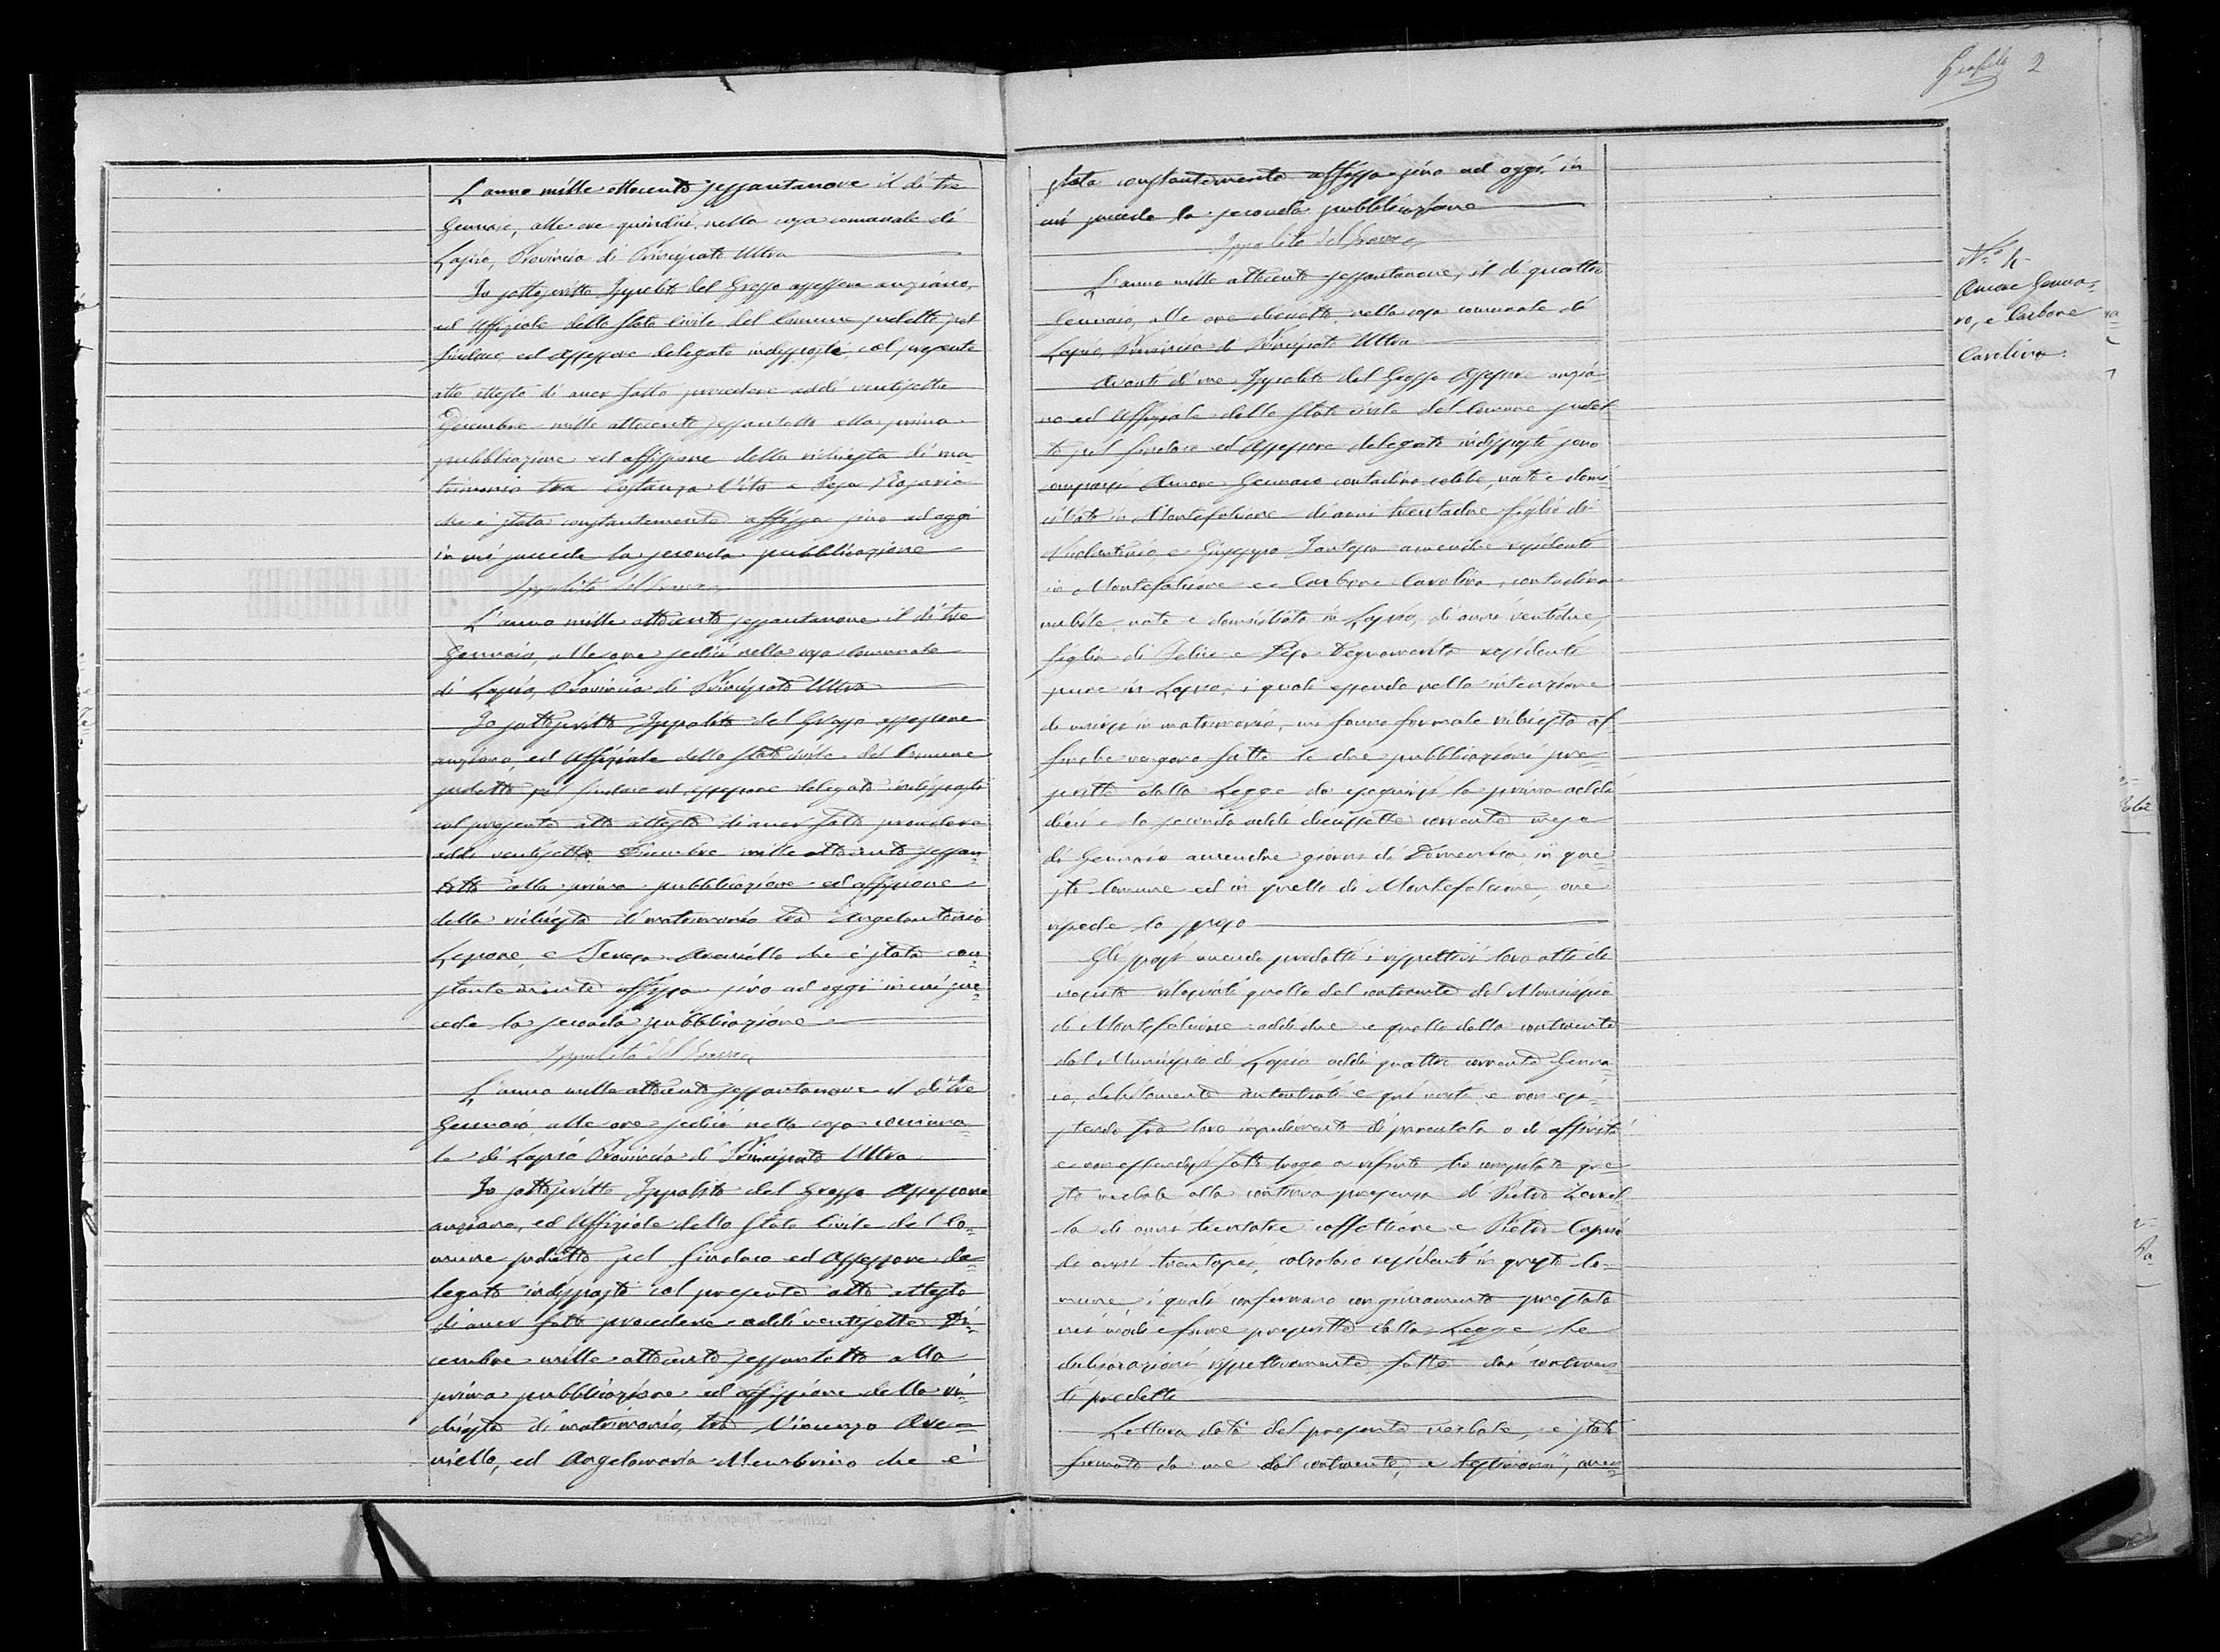 L'anno mille ottocento sessantanove il dì tre
Gennaio, alle ore quindici, nella casa comunale di
Lapio, Provincia di Principato Ultra
Io sottoscritto Ippolito del Grosso assessore anziano,
ed Uffiziale dello Stato Civile del Comune sudetto pel
Sindaco ed Assessore delegato indisposti, col presente
atto attesto di aver fatto procedere addì ventisette
Dicembre mille ottocento sessantotto alla prima
pubblicazione ed affissione della richiesta di ma=
trimonio tra Costanza Vito e Pepe Rosaria
che è stata constantemente affissa sino ad oggi
in cui succede la seconda pubblicazione
Ippolito del Grosso
L'anno mille ottocento sessantanove il dì tre
Gennaio, alle ore sedici nella casa comunale
di Lapio, Provincia di Principato Ultra
Io sottoscritto Ippolito del Grosso assessore
anziano, ed Uffiziale dello Stato Civile del Comune
sudetto pel Sindaco ed assessore delegato indisposti
col presente atto attesto di aver fatto procedere
addì ventisette Dicembre mille ottocento sessan=
totto alla prima pubblicazione ed affissione
della richiesta di matrimonio tra Angelantonio
Lepore, e Teresa che è stata con=
stantemente affissa sino ad oggi in cui suc=
cede la seconda pubblicazione
Ippolito del Grosso
L'anno mille ottocento sessantanove il dì tre
Gennaio, alle ore sedici nella casa comuna=
le di Lapio Provincia di Principato Ultra
Io sottoscritto Ippolito del Grosso Assessore
anziano, ed Uffiziale dello Stato Civile del Co=
mune sudetto pel Sindaco ed Assessore de=
legato indisposti col presente atto attesto
di aver fatto procedere addì ventisette Di=
cembre mille ottocento sessantotto alla
prima pubblicazione ed affissione della ri=
chiesta di matrimonio, tra Vincenzo
ed Angelamaria che è
Gentile 2
stata constantemente affissa sino ad oggi, in
cui succede la seconda pubblicazione
Ippolito del Grosso
L'anno mille ottocento sessantanove, il dì quattro
Gennaio, alle ore diciotto nella casa comunale di
Lapio, Provincia di Principato Ultra
Avanti di me Ippolito del Grosso Assessore anzia=
no ed Uffiziale dello Stato Civile del Comune sudet=
to pel Sindaco ed Assessore delegato indisposti sono
comparsi Amore Gennaro contadino celibe, nato e domi=
ciliato in Montefalcione di anni trentadue figlio di
e Giuseppa amendue residenti
in Montefalcione e Carbone Carolina, contadina
nubile, nata e domiciliata in Lapio, di anni ventidue,
figlia di Felice e Pepe residenti
pure in Lapio, i quali essendo nella intenzione
di unirsi in matrimonio, mi fanno formale richiesta af=
finché vengano fatte le due pubblicazioni pre=
scritte dalla Legge da eseguirsi la prima addì
dieci e la seconda addì diciassette corrente mese
di Gennaio amendue giorni di Domenica in que=
sto Comune ed in quello di Montefalcione, ove
risiede lo sposo
Gli sposi avendo prodotti i rispettivi loro atti di
nascita rilasciati quello del contraente dal Municipio
di Montefalcione addì due e quello della contraente
dal Municipio di Lapio addì quattro corrente Genna=
io, debitamente autenticati e quì uniti, e non esi=
stendo fra loro impedimenti di parentela o di affinità
e non essendosi fatto luogo a rifiuto ho compilato que=
sto verbale alla continua presenza di Pietro
di anni trentatre caffettiere e Pietro
di anni trentasei, calzolaio residenti in questo Co=
mune, i quali confermano con giuramento prestato
nei modi e forme prescritte dalla Legge le
dichiarazioni rispettivamente fatte dai contraen=
ti predetti
Lettura data del presente verbale, è stato
firmato da me dal contraente, e testimoni, aven=
N.º 4
Amore Genna=
ro, e Carbone
Carolina.